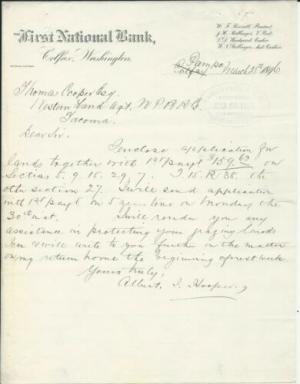 First National Bank,
Colfax, Washington.
Pampa
Colfax March 28th 1896
Thomas Cooper Esq.
Western Land Agt. N.P.R.R.Co.
Tacoma.
Dear Sir.
I enclose application for
lands together with 1st paymt
Sections 5. 9. 15. 29. 7. T. 15. R. 38. the
other section 27. I will send application
with 1st paymt on 5 year time on Monday the
30th inst. I will render you any
assistance in protecting your grazing lands
and will write to you further in the matter
on my return home the beginning of next week
Yours truly,
Albert